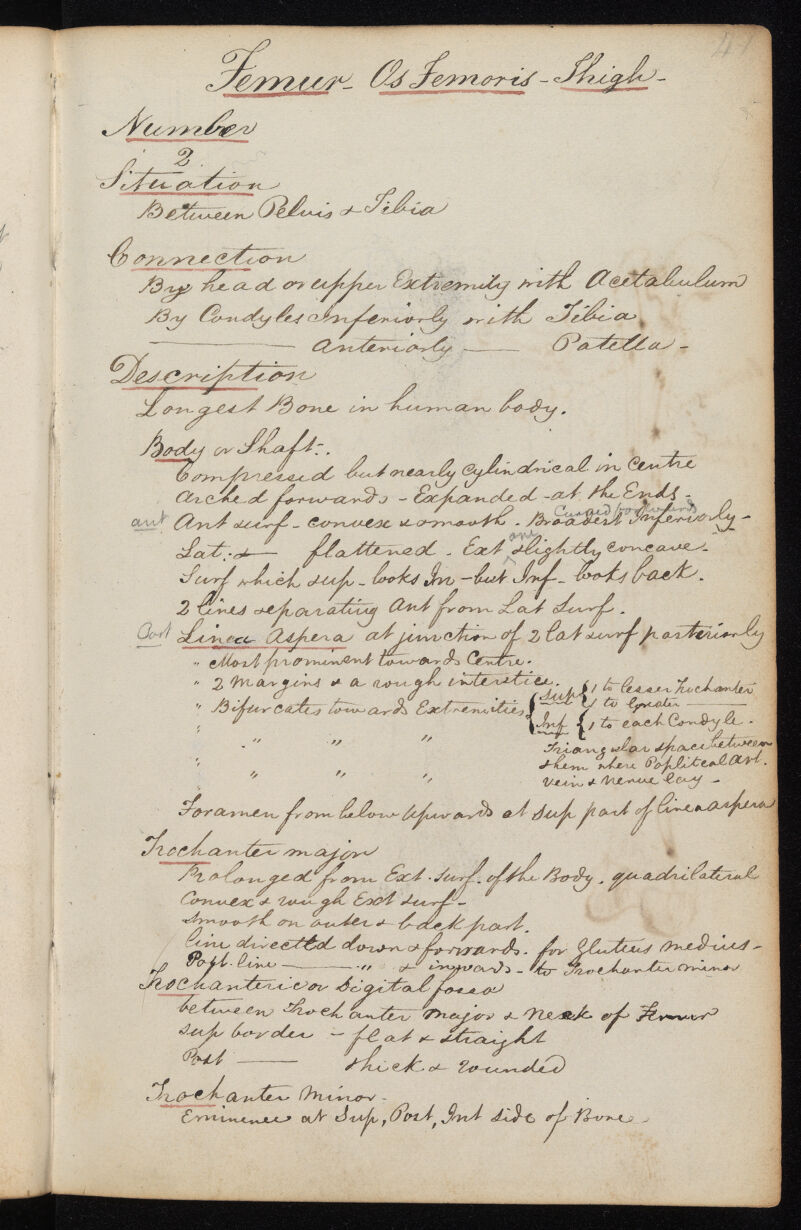 47
Femur - Os Femoris - Thigh -
Number
2
Situation
Between Pelvis & Tibia
Connection
By head or upper Extremity with Acetabulum
By Condyles Inferiorly with Tibia
——— anteriorly — Patella -
Description
Longest Bone in human body.
Body or Shaft:.
Compressed but nearly Cylindrical in Centre
Arched forwards - Expanded - at the Ends -
Curved forwards
ant Ant surf - convex & smooth. Broadest Inferiorly -
Lat: & — flattened. Ext and slightly concave.
Surf which sup - looks In - but Inf - looks back.
2 lines separating Ant from Lat Surf.
Post Linea Aspera at junction of 2 lat surf posteriorly
" Most prominent towards Centre.
" 2 Margins & a rough interstice.
" Bifurcates towards Extremities { Sup { 1 to lesser Trochanter
1 to Greater ———
Inf { 1 to each Condyle.
" " " " Triangular space between
" them where Popliteal Art.
" " " vein & nerve lay -
Foramen from below Upwards at Sup part of linea aspera
Trochanter major
Prolonged from Ext. surf. of the Body. quadrilateral
Convex & rough Ext surf -
Smooth on outer & back part.
line directed down & forwards. for Gluteus medius -
Post. line ——— " & inwards - to Trochanter minor
Trochanteric or Digital fossa
between Trochanter Major & Neck of Femur
Sup border - flat & straight
Post — thick & rounded
Trochanter Minor -
Eminence at Sup, Post, Int side of Bone